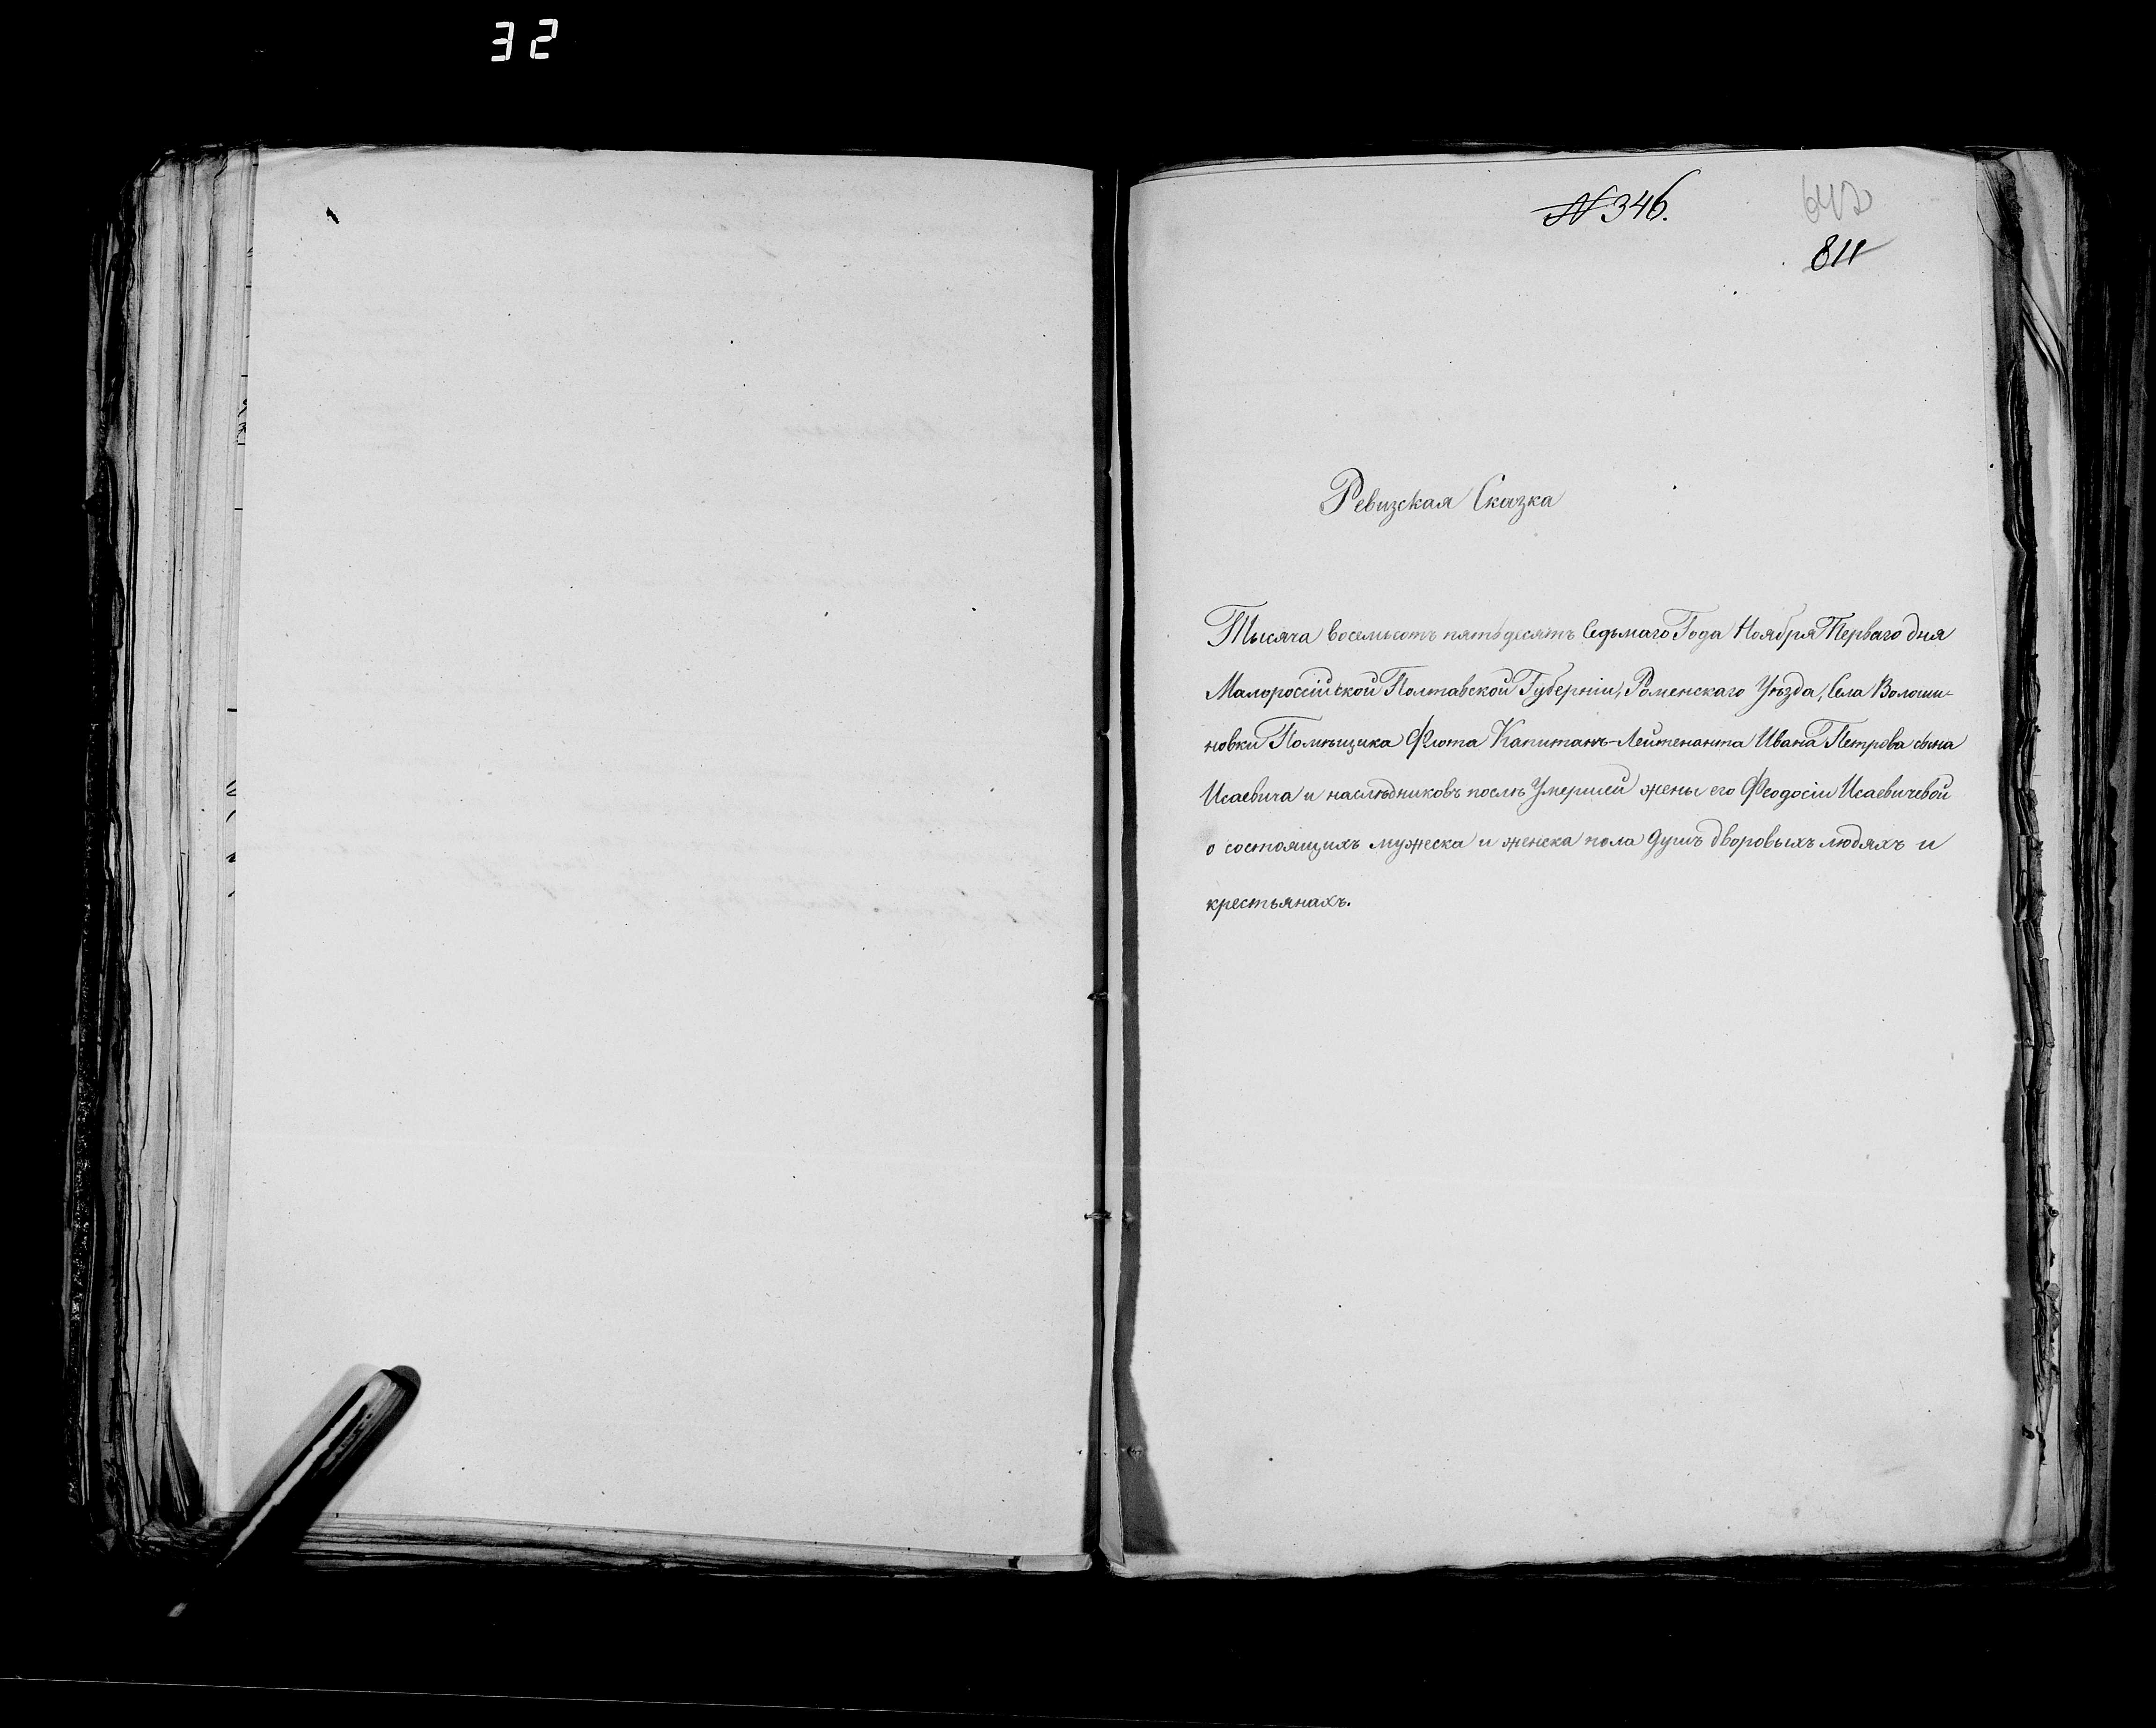 32
№ 346.
811
Ревизская Сказка
Тысяча восемьсотъ пятьдесятъ Седьмаго Года Ноября Перваго дня
Малороссійской Полтавской Губерніи, Роменскаго Уѣзда, Села Волоши-
новки Помѣщика Флота Капитанъ-Лейтенанта Ивана Петрова сына
Исаевича и наслѣдниковъ послѣ Умершей жены его Феодосіи Исаевичевой
о состоящихъ мужеска и женска пола душъ дворовыхъ людяхъ и
крестьянахъ.